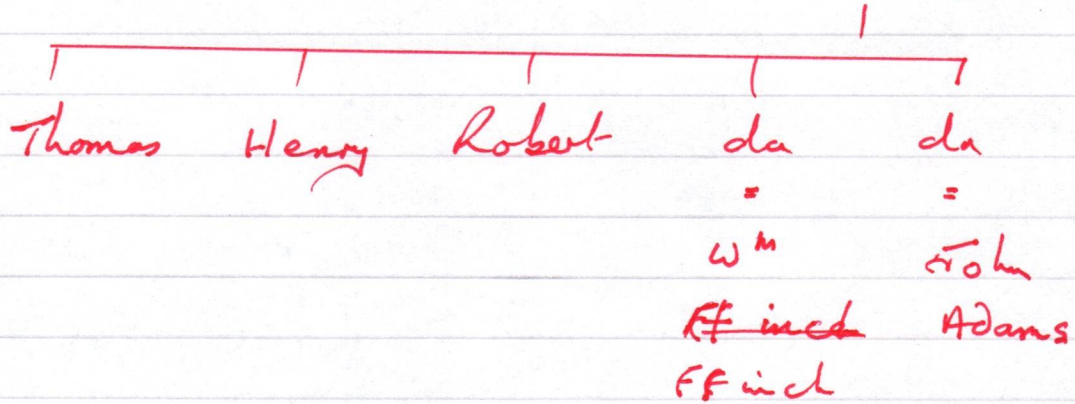 Thomas Henry Robert da da
= =
Wm John
Ffinch Adams
Ffinch